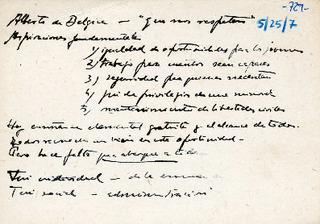 -727-
Alberto de Belgica — "Que nos respeten" 5/25/7
Aspiraciones fundamentales
1) igualdad de oportunidades para los jovenes
2) trabajo para cuantos sean capaces
3) seguridad para quienes necesiten
4) fin de privilegios de una minoria
5) mantenimiento de libertades civiles
Hoy enseñanza elemental gratuita y al alcance de todos.
en esta oportunidad —
Pero hace falta que abarque a todo
universidad — de la
social — administracion